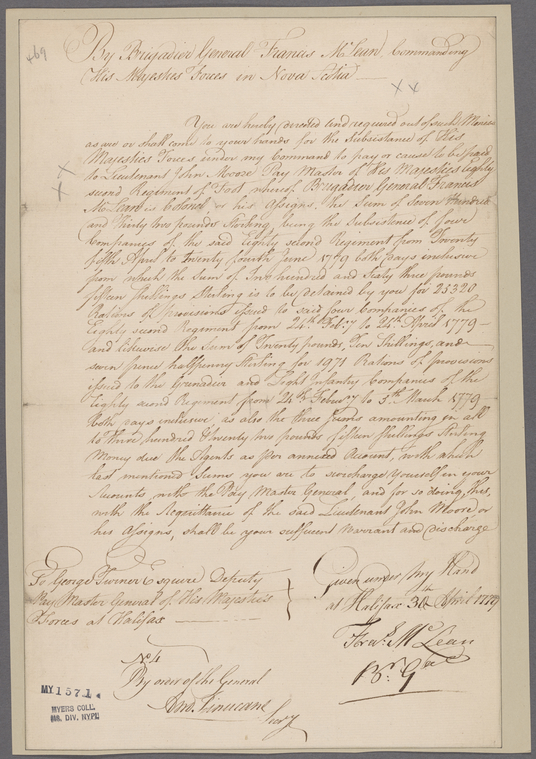 469
By Brigadier General Francis McLean, Commanding
His Majesties Forces in Nova Scotia
x x
You are hereby directed and required out of such Monies
as are or shall come to your hands for the Subsistance of His
Majesties Forces under my Command to pay or cause to be paid
x to Lieutenant John Moore Pay Master of His Majesties Eighty
x second Regiment of Foot, whereof Brigadier General Francis
McLean is Colonel or his Assigns, the Sum of Seven Hundred
and Thirty two pounds Sterling, being the Subsistence of four
Companies of the said Eighty second Regiment from Twenty
fifth April to Twenty fourth June 1779 both days inclusive
from which the Sum of Two hundred and Sixty three pounds
fifteen Shillings Sterling is to be detained by you for 25320
Rations of provisions issued to said four Companies of the
Eighty second Regiment from 24th Feb:ry to 24th April 1779
and likewise the Sum of Twenty pounds, Ten Shillings, and
seven pence halfpenny Sterling for 1971 Rations of provisions
issued to the Grenadier and Light Infantry Companies of the
Eighty second Regiment from 24th Febury to 5th March 1779
both days inclusive, as also the three Sums amounting in all
to three hundred & twenty two pounds fifteen Shillings Sterling
Money due the Agents as per annexed Account, with which
last mentioned Sums you are to surcharge Yourself in your
Accounts with the Pay Master General, and for so doing, this,
with the Acquittance of the said Lieutenant John Moore or
his Assigns, shall be your sufficient Warrant and Discharge
To George Turner Esquire Deputy
Pay Master General of His Majesties
Forces at Halifax
Given under my Hand
at Halifax 30th April 1779
Frans. McLean
Br. G
No. 4
By order of the General
And. Finucane
Secry
MY 1571.
MYERS COLL.
MS. DIV. NYPL